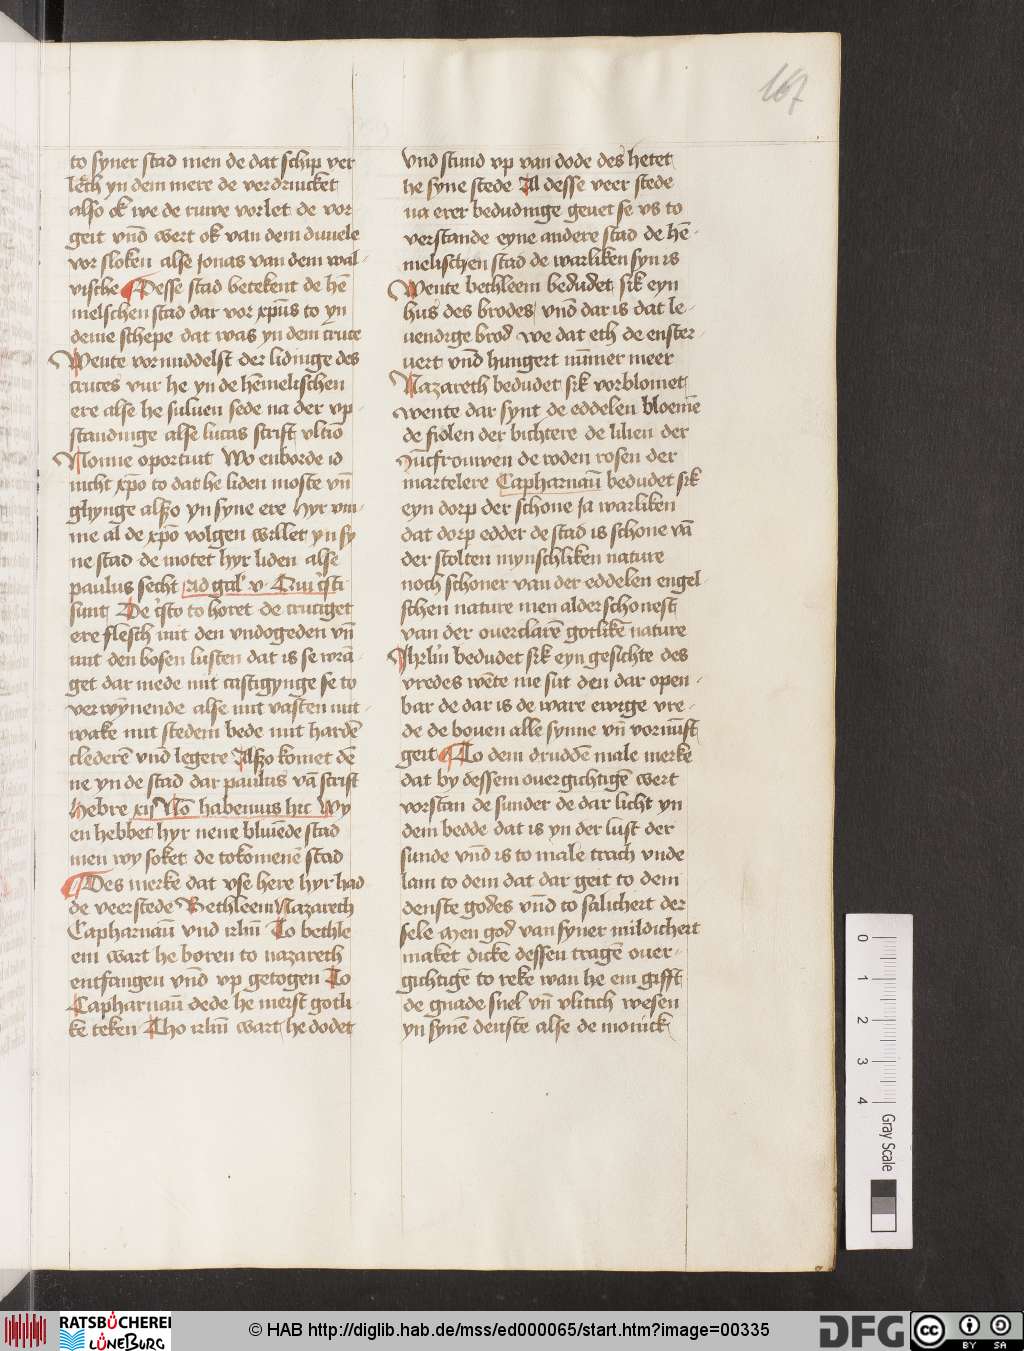 167
to syner stad men de dat schip ver
lech yn dem mere de verdrincket
also ok we de ruwe vorlet de vor
geit vnd wert ok van dem duuele
vor sloken alse jonas van dem wal-
vische Desse stad betekent de hē
melschen stad dar vor xpūs to yn
deme schepe dat was yn dem cruce
Wente vormiddelst der lidinge des
cruces vur he yn de hēmelischen
ere alse he suluen sede na der vp-
standinge alse lucas scrift vltīo
Nonne oportuit Wo enborde id
nicht xp̄o to dat he liden moste vn̄
ghynge alszo yn syne ere Hyr vm-
me al de xp̄o volgen willet yn sy
ne stad de motet hyr liden alse
paulus secht ad gal' v Qui xp̄sti
sunt De xp̄sto to horet de cruciget
ere flesch mit den vndogeden vn̄
mit den bosen lusten dat is se wrā-
get dar mede mit castigynge se to
verwynende alse mit vasten mit-
wake mit stedem bede mit hardē
clederē vnd legere Alszo komet dē
ne yn de stad dar paulus vā scrift
Hebre xiij Nō habemus hic Wy
en hebbet hyr nene bliuēde stad
men wy soket de tokomenē stad
Des merke dat vse here hyr had
de veer stede Bethleem Nazareth
Capharnaū vnd irl̄m To bethle
em wart he boren to nazareth
entfangen vnd vp getogen To
Capharnaū dede he merst gotli
ke teken Tho irl̄m wart he dodet
vnd stund vp van dode des hetet
he syne stede Al desse veer stede
na erer bedudinge geuet se vs to
verstande eyne andere stad de hē-
melischen stad de warliken syn is
Wente bethleem bedudet sik eyn
hus des brodes vnd dar is dat le-
uendige brod we dat eth de enster-
uert vnd hungert nūmer meer
Nazareth bedudet sik vorblomet
wente dar synt de eddelen bloemē
de fiolen der bichtere de lilien der
Juncfrouwen de roden rosen der
martelere Capharnaū bedudet sik
eyn dorp der schone Ja warliken
dat dorp edder de stad is schone vā
der stolten mynschliken nature
noch schoner van der eddelen engel-
schen nature men alderschonest
van der ouerclarē gotlikē nature
Jhrl̄m bedudet sik eyn gesichte des
vredes wēte me sut den dar open-
bar de dar is de ware ewige vre-
de de bouen alle synne vn̄ vornūft
geit To dem druddē male merke
dat by dessem ouergichtigē wert
vorstan de sunder de dar licht yn
dem bedde dat is yn der lust der
sunde vnd is to male trach vnde
lam to dem dat dar geit to dem
denste godes vnd to salichert der
sele Men god van syner mildichert
maket dicke dessen tragē ouer-
gichtigē to reke wan he em gifft
de gnade snel vn̄ vlitich wesen
yn synē denste alse de monick
0 1 2 3 4 Gray Scale
RATSBÜCHEREI
LÜNEBURG
© HAB http://diglib.hab.de/mss/ed000065/start.htm?image=00335
DFG
cc BY SA